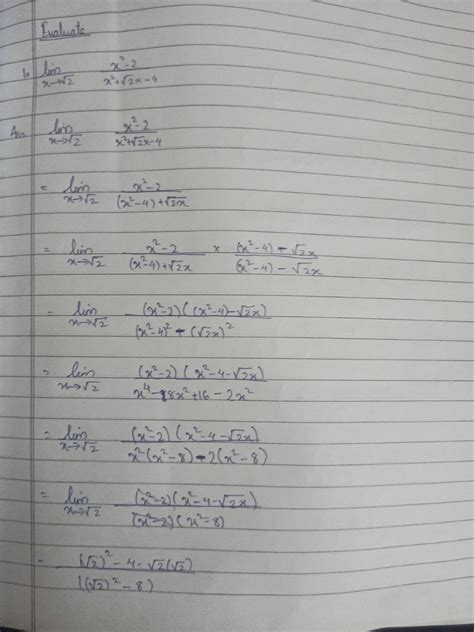 Evaluate
1. lim x→√2 x²-2 / x²+√2x-4
Ans lim x→√2 x²-2 / x²+√2x-4
= lim x→√2 x²-2 / (x²-4)+√2x
= lim x→√2 x²-2 / (x²-4)+√2x × (x²-4)-√2x / (x²-4)-√2x
= lim x→√2 (x²-2)((x²-4)-√2x) / (x²-4)²-(√2x)²
= lim x→√2 (x²-2)(x²-4-√2x) / x⁴-8x²+16-2x²
= lim x→√2 (x²-2)(x²-4-√2x) / x²(x²-8)-2(x²-8)
= lim x→√2 (x²-2)(x²-4-√2x) / (x²-2)(x²-8)
= (√2)²-4-√2(√2) / ((√2)²-8)